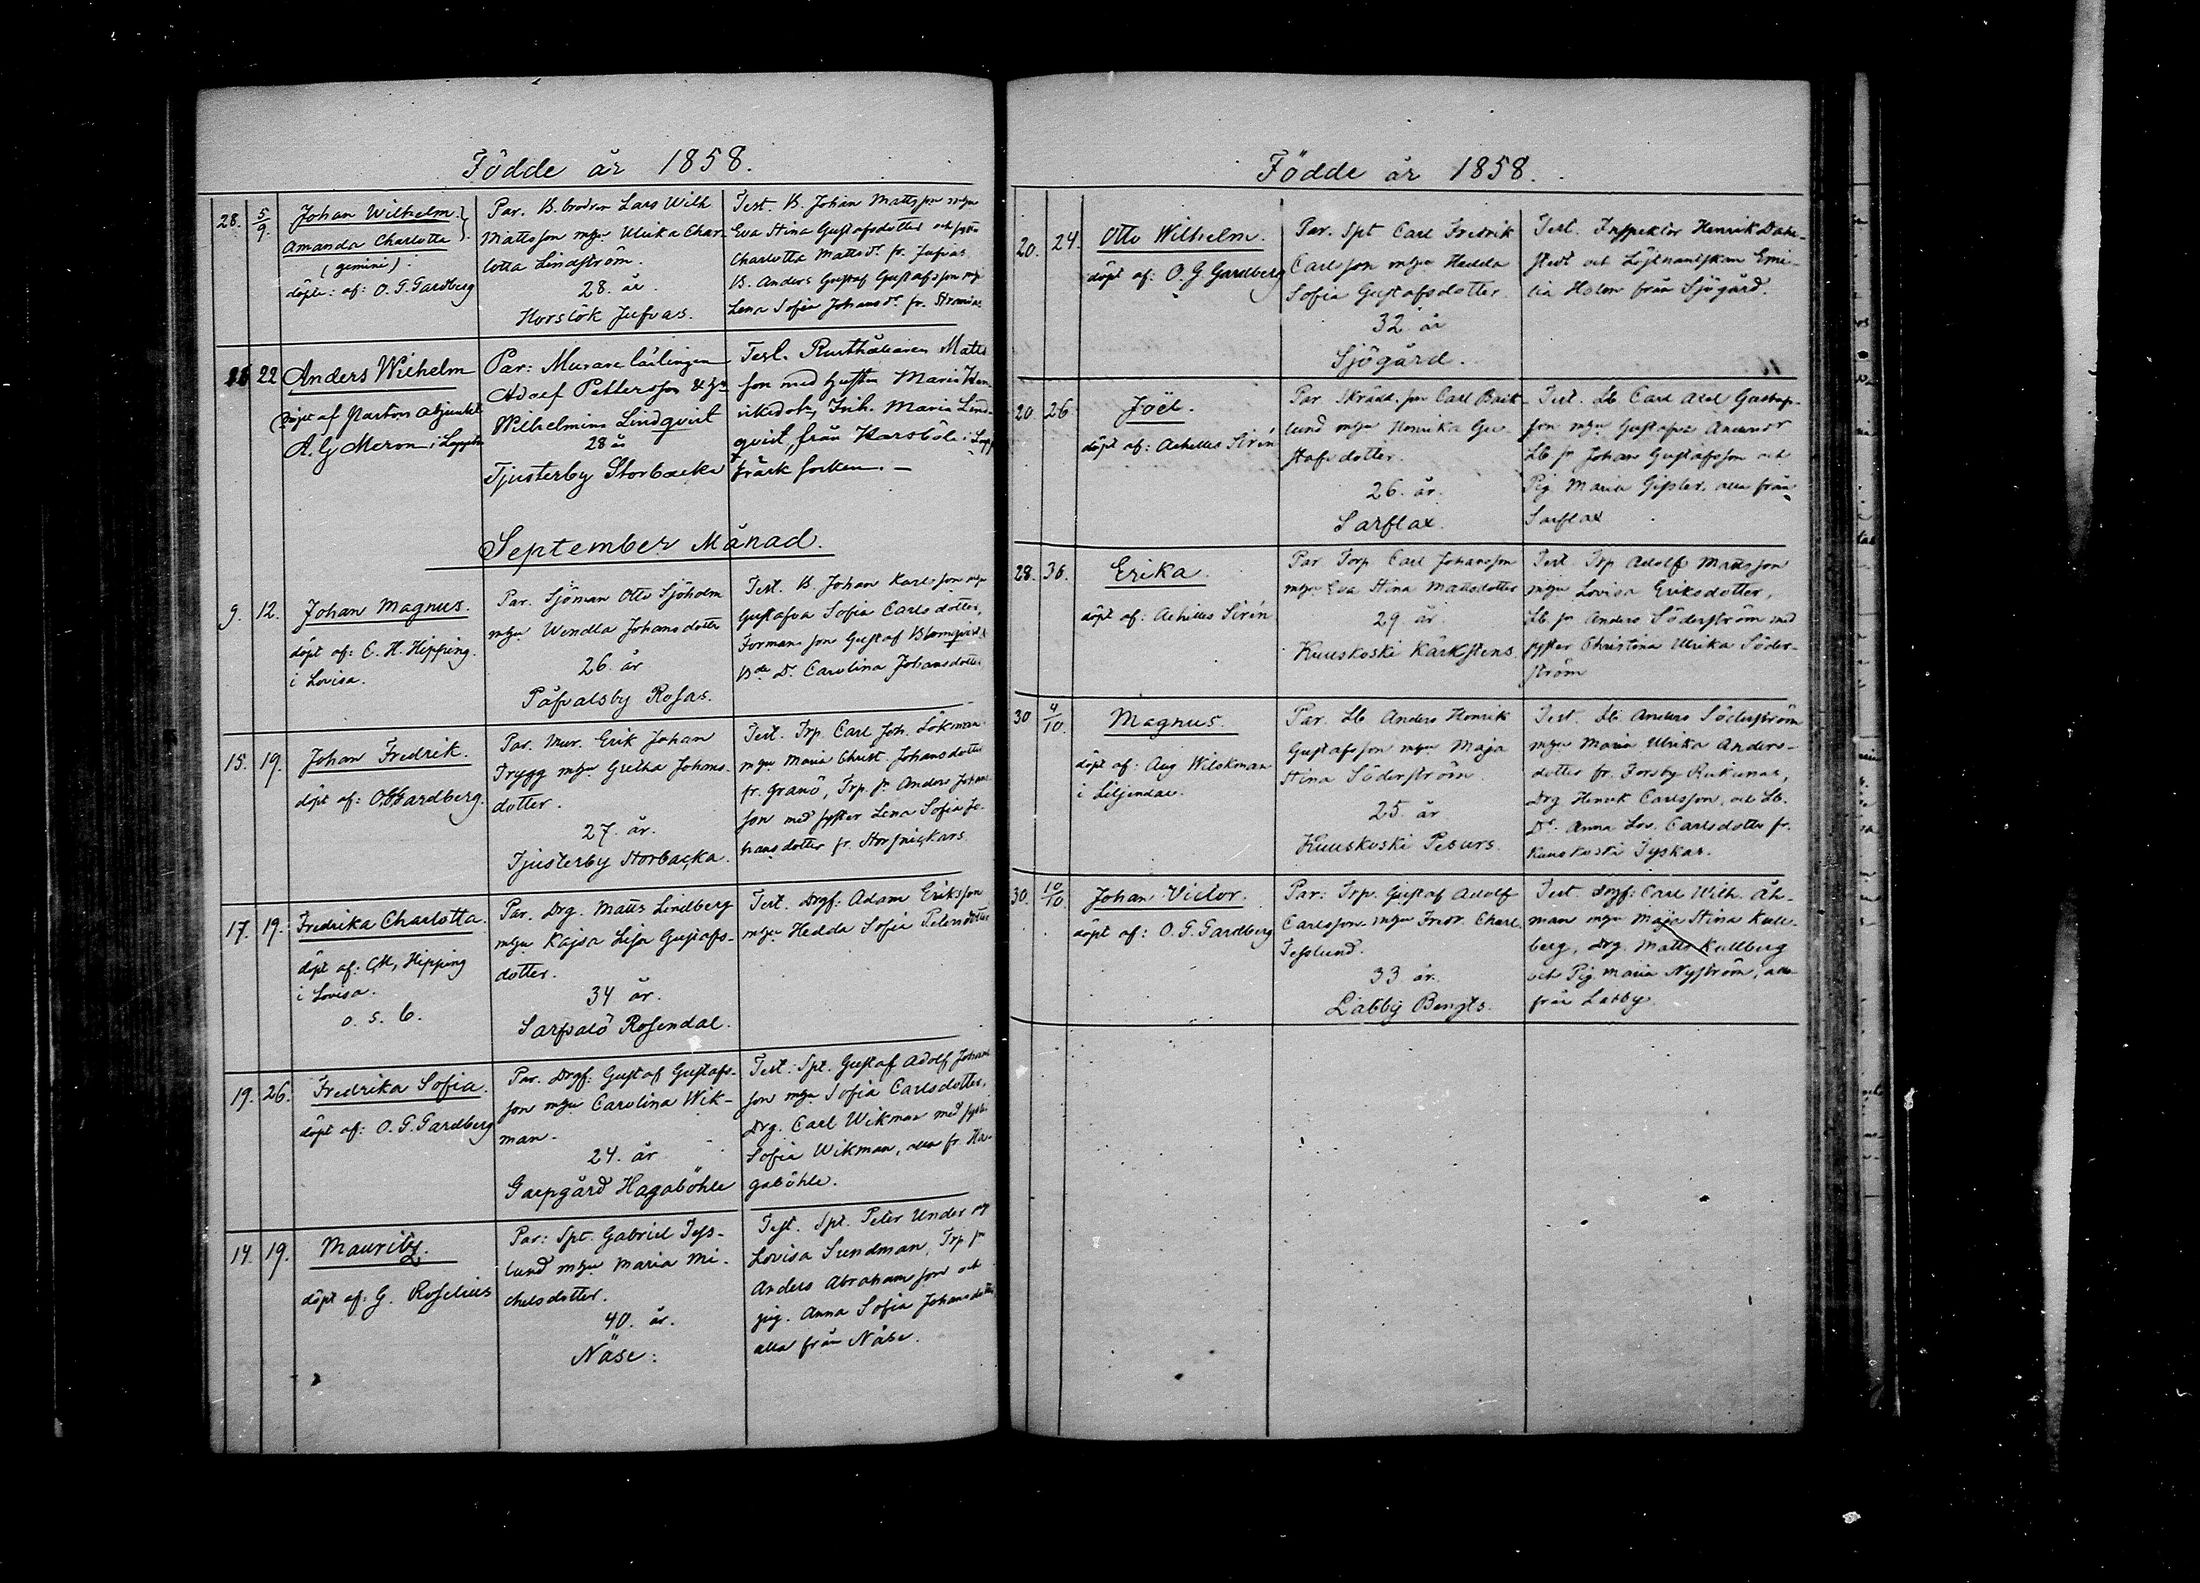 Födde år 1858.
28. 5/9 Johan Wilhelm
Amanda Charlotta
(gemini)
döpte: af: O. G. Gardberg
Par. B. brodren Lars Wilh
Mattsson mhu Ulrika Char-
lotta Lindström.
28. år.
Horslök Jufvas.
Test. B. Johan Mattsson mhu
Eva Stina Gustafsdotter och
Charlotta Mattsdr. fr. Jufvas
B. Anders Gustaf Gustafsson
Lena Sofia Johansdr. fr.
22 Anders Wilhelm
Döpt af Pastors adjunkt
A. G. Meron i
Par: Murare lärlingen
Adolf Pettersson & hu
Wilhelmina Lindqvist
28 år
Tjusterby Storbacka
Test. Rusthållaren Matts
son med hustru Maria Hen
riksdotr, Inh. Maria Lind-
qvist, från Harsböle i Lapp
träsk socken. –
September Månad.
9. 12. Johan Magnus.
döpt af: C. H. Hipping.
i Lovisa.
Par. Sjöman Otto Sjöholm
mhu Wendla Johansdotter
26. år
Påfvalsby Rosas.
Test. B Johan Karlsson mhu
Gustafva Sofia Carlsdotter,
Forman son Gustaf Blomqvist &
Bde Dr. Carolina Johansdotter
15. 19. Johan Fredrik.
döpt af: O.G. Gardberg.
Par. Mur. Erik Johan
Trygg mhu Gretha Johans
dotter.
27. år.
Tjusterby Storbacka.
Test. Trp. Carl Joh. Lökman
mhu Maria Christ. Johansdotter
fr. Granö, Trp. sn Anders Johans
son med syster Lena Sofia Jo
hansdotter fr. Storsnickars
17. 19. Fredrika Charlotta.
döpt af: C.H. Hipping
i Lovisa.
o. s. b.
Par. Drg. Matts Lindberg
mhu Kajsa Lisa Gustafs-
dotter.
34 år.
Sarfsalö Rosendal.
Test. Drgf: Adam Eriksson
mhu Hedda Sofia Petersdotter
19. 26. Fredrika Sofia.
döpt af: O. G. Gardberg
Par. Drgf: Gustaf Gustafs-
son mhu Carolina Wik-
man.
24. år
Garpgård Hagaböhle
Test. Spt. Gustaf Adolf Johans
son mhu Sofia Carlsdotter,
Drg. Carl Wikman med syster
Sofia Wikman, alla fr. Ha-
gaböhle.
14. 19. Mauritz.
döpt af: G. Roselius
Par: Spt. Gabriel Tess-
lund mhu Maria Mi-
chelsdotter.
40. år.
Näse:
Test. Spt. Peter Under
Lovisa Sundman, Trp sn
Anders Abrahamsson och
pig. Anna Sofia Johansdotter
alla från Näse.
Födde år 1858.
20. 24. Otto Wilhelm.
döpt af: O. G. Gardberg
Par. Spt Carl Fredrik
Carlsson mhu Hedda
Sofia Gustafsdotter
32 år
Sjögård.
Test. Inspektor Henrik Dahl-
stedt och Löjtnantskan Emi-
lia Holm från Sjögård.
20. 26. Joël.
döpt af: Achilles Sirén
Par Skrädd. sn Carl Back-
lund mhu Henrika Gu-
stafsdotter.
26. år.
Sarflax.
Test. Lb. Carl Axel Gustaf-
son mhu Gustafva
Lb sn Johan Gustafsson och
Pig. Maria Gissler, alla från
Sarflax
28. 30. Erika.
döpt af: Achilles Sirén
Par Torp Carl Johansson
mhu Eva Stina Mattsdotter
29 år
Kuuskoski Kärkstens.
Test Trp Adolf Mattsson
mhu Lovisa Eriksdotter,
Lb sn Anders Söderström med
syster Christina Ulrika Söder-
ström
30 4/10. Magnus.
döpt af: Aug Wilskman
i Liljendal.
Par. Lb Anders Henrik
Gustafsson mhu Maja
Stina Söderström.
25. år
Kuuskoski Pesurs.
Test. Lb. Anders Söderström
mhu Maria Ulrika Anders-
dotter fr. Forsby Rukunas,
Drg Henrik Carlsson, och Lb.
Dr. Anna Lov. Carlsdotter fr.
Kuuskoski Tyskas.
30. 10/10 Johan Victor.
döpt af: O. G. Gardberg
Par: Trp. Gustaf Adolf
Carlsson mhu Fredr. Charl.
Tesslund.
33 år.
Labby Bengts.
Test Drgf: Carl Wilh. Åh-
man mhu Maja Stina Kull-
berg, Drg. Matts Kullberg
och Pig Maria Nyström, alla
från Labby.